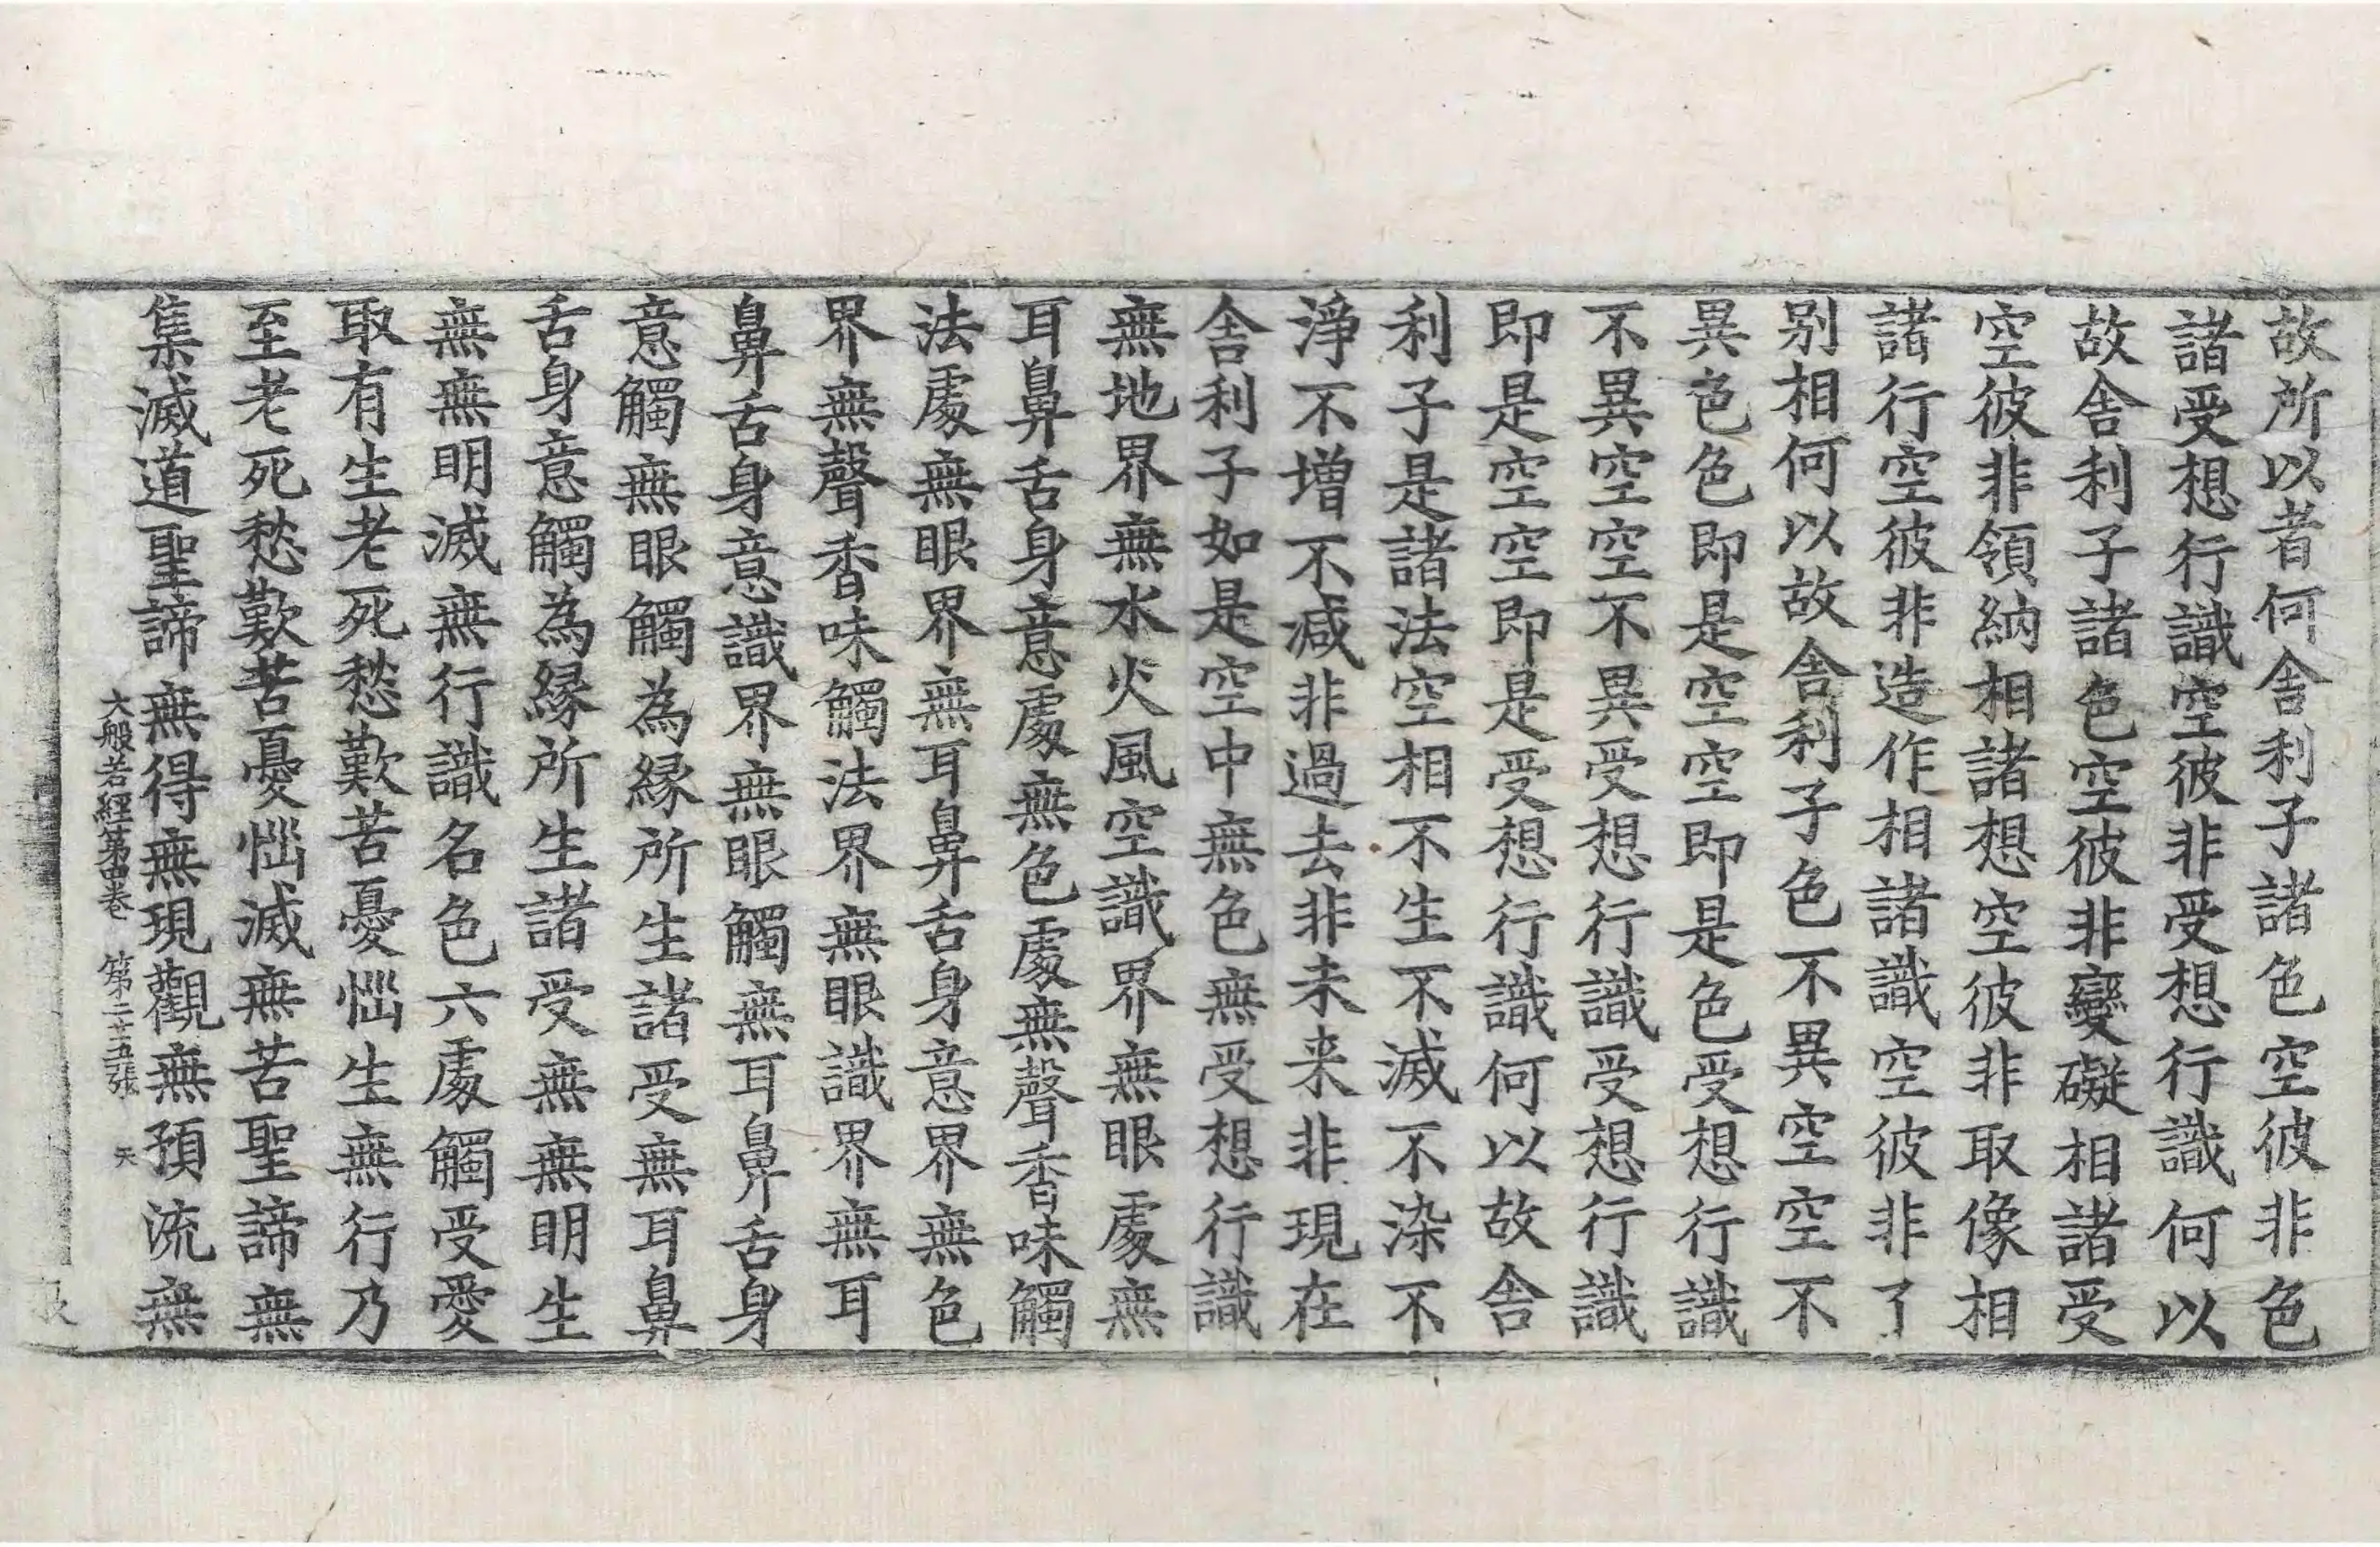 故所以者何舍利子諸色空彼非色
諸受想行識空彼非受想行識何以
故舍利子諸色空彼非變礙相諸受
空彼非領納相諸想空彼非取像相
諸行空彼非造作相諸識空彼非了
别相何以故舍利子色不異空空不
異色色即是空空即是色受想行識
不異空空不異受想行識受想行識
即是空空即是受想行識何以故舍
利子是諸法空相不生不滅不染不
淨不增不減非過去非未来非現在
舍利子如是空中無色無受想行識
無地界無水火風空識界無眼處無
耳鼻舌身意處無色處無聲香味觸
法處無眼界無耳鼻舌身意界無色
界無聲香味觸法界無眼識界無耳
鼻舌身意識界無眼觸無耳鼻舌身
意觸無眼觸為緣所生諸受無耳鼻
舌身意觸為緣所生諸受無無明生
無無明滅無行識名色六處觸受愛
取有生老死愁歎苦憂惱生無行乃
至老死愁歎苦憂惱滅無苦聖諦無
集滅道聖諦無得無現觀無預流無
大般若經第四卷 第二十五張 天